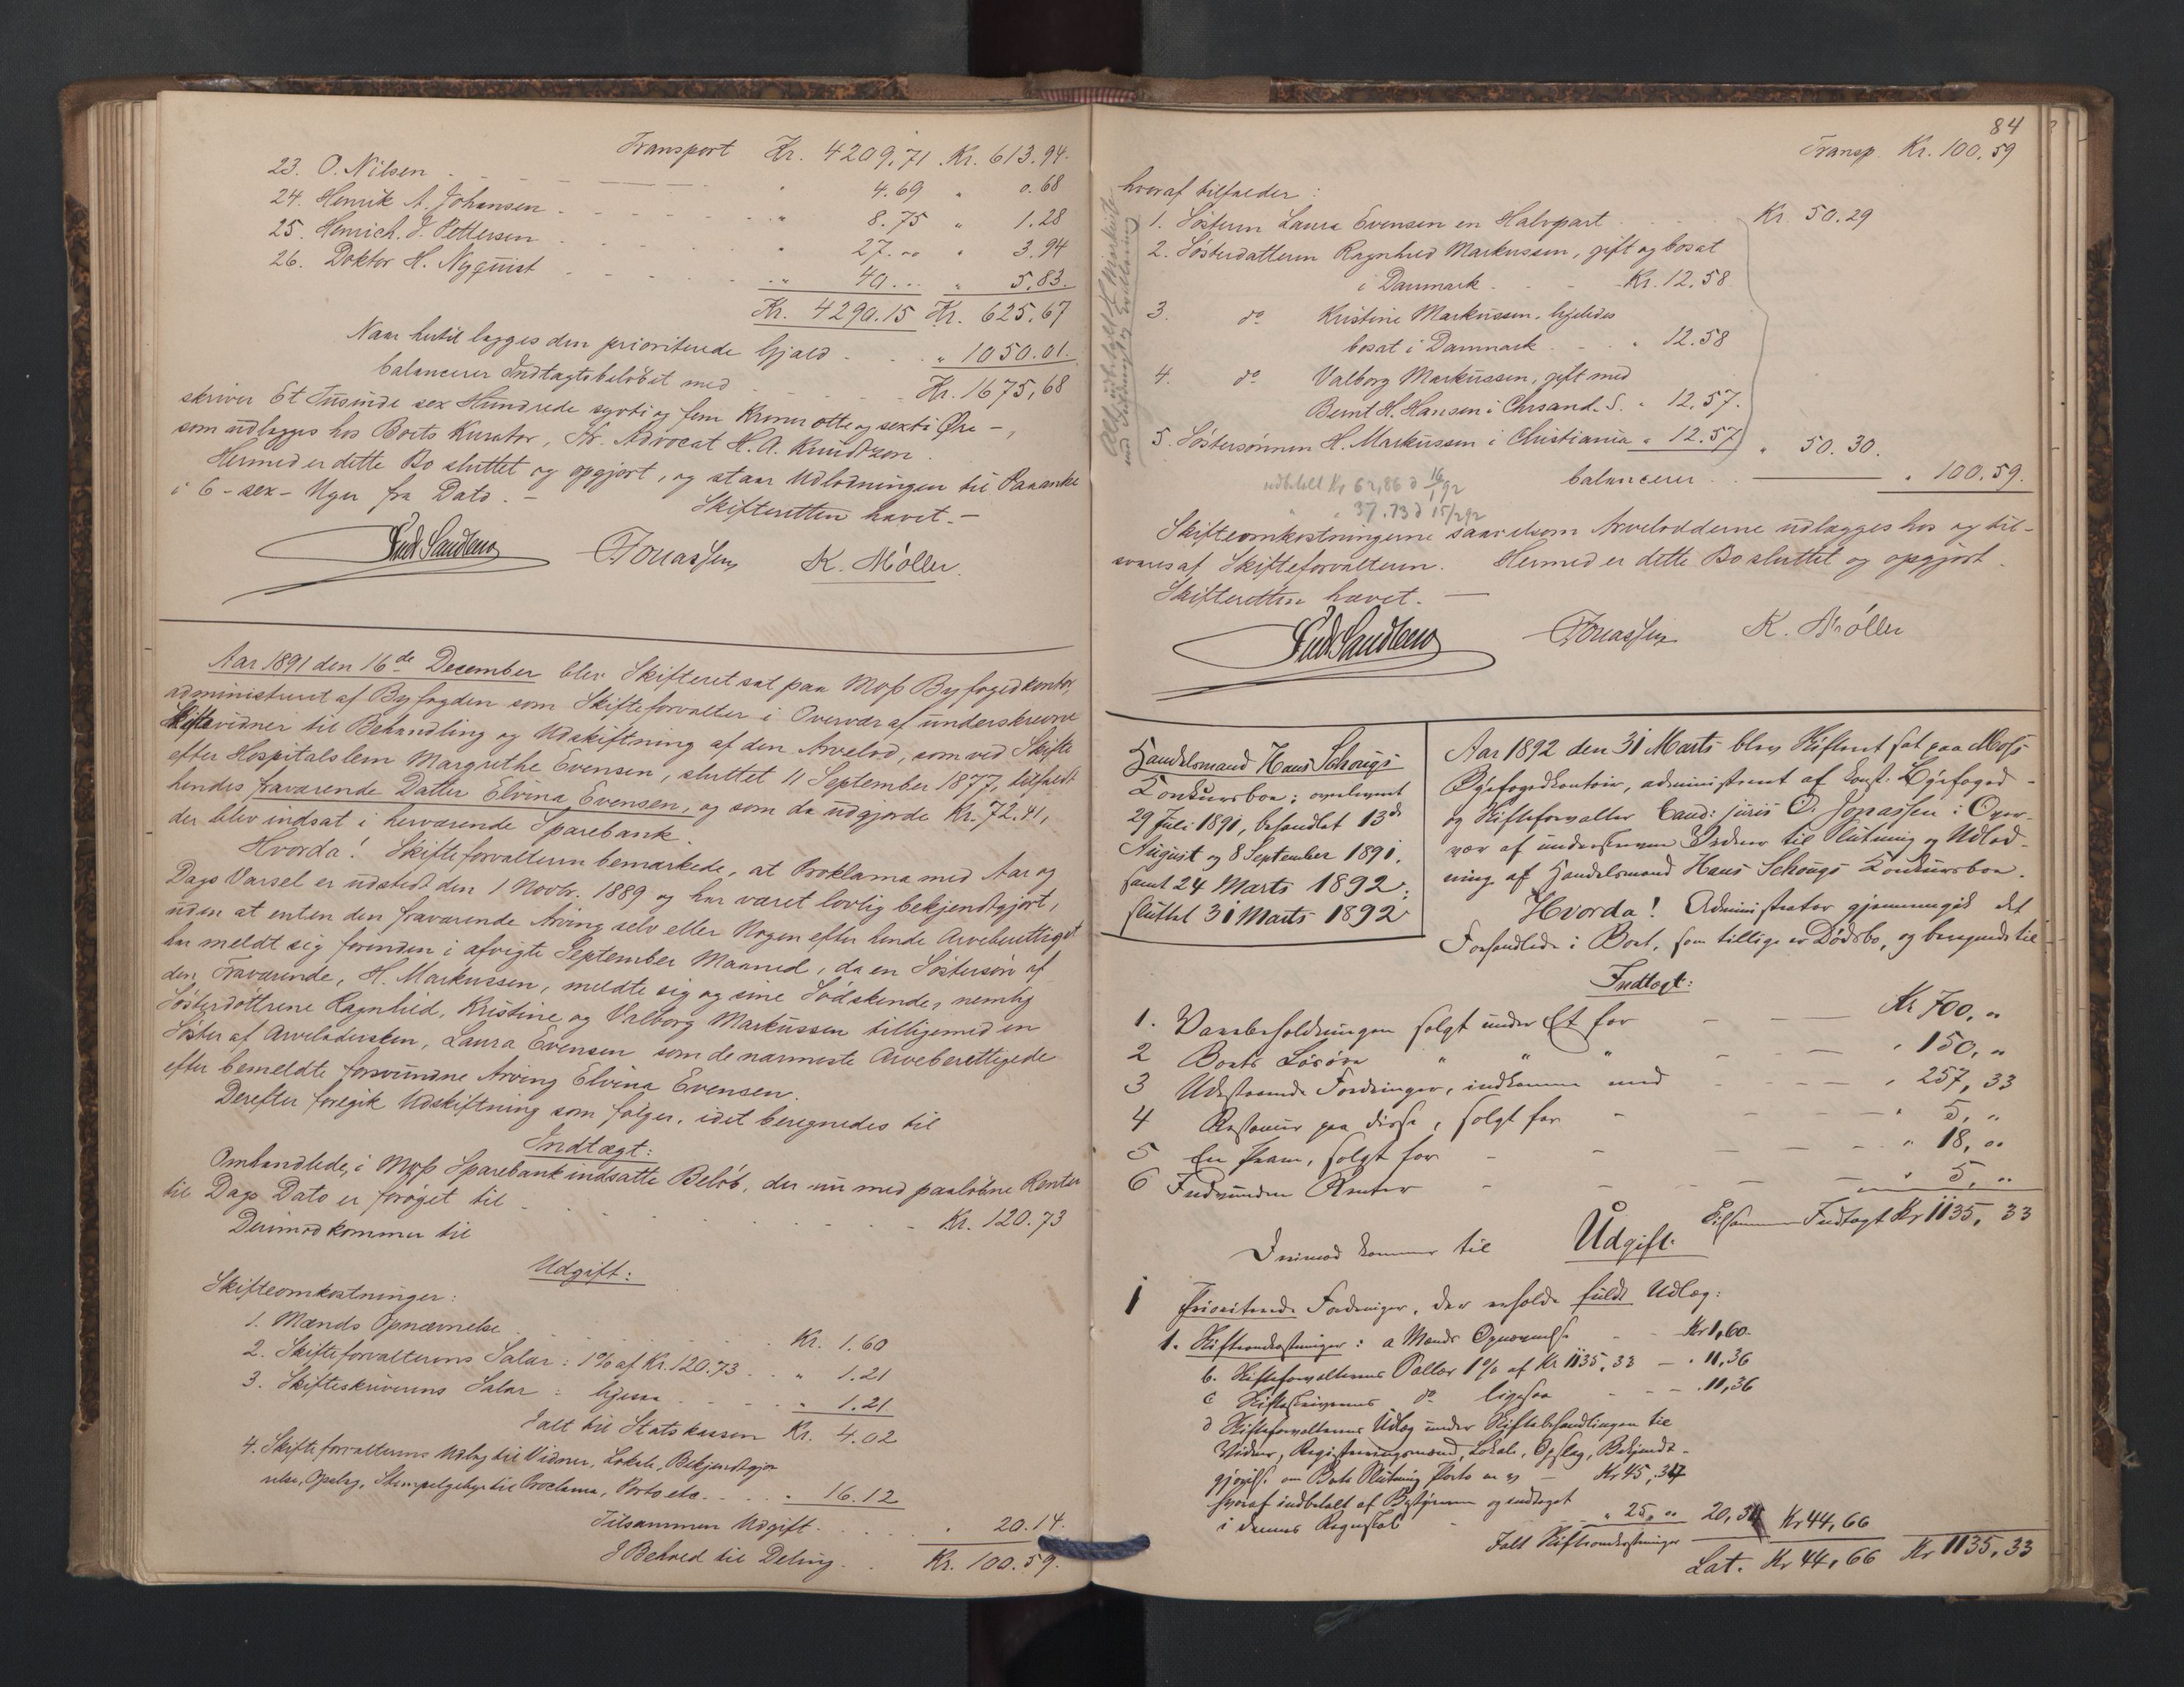 Transport Kr. 4209.71 Kr. 613.94.
23. O. Nilsen " 4.69 " 0.68
24. Henrik A. Johansen " 8.75 " 1.28
25. Henrich. J. Pettersen " 27.00 " 3.94
26. Doktor H. Nyquist " 40... " 5.83.
Kr. 4290.15 Kr. 625.67
Naar hertil lægges den prioriterede Gjæld " 1050.01.
balancerer Indtægtsbeløbet med Kr. 1675,68
skriver Et Tusinde sex Hundrede sytti og fem Kroner otte og sexti Øre -,
som udlægges hos Boets Kurator, Hr. Advocat H. A. Knudtzon.
Hermed er dette Bo sluttet og opgjort, og staar Udlodningen til Paaanke
i 6 - sex - Uger fra Dato. -
Skifteretten hævet. -
Jonassen K. Møller.
Aar 1891 den 16de December blev Skifteret sat paa Moss Byfogedkontor,
administreret af Byfogden som Skifteforvalter i Overvær af underskrevne
Skiftevidner til Behandling og Udskiftning af den Arvelod, som ved Skifte
efter Hospitalslem Margrethe Evensen, sluttet 11 September 1877, tilfaldt
hendes fraværende Datter Elvina Evensen, og som da udgjorde Kr. 72.41,
der blev indsat i herværende Sparebank.
Hvorda! Skifteforvalteren bemærkede, at Proklama med Aar og
Dags Varsel er udstedt den 1 Novbr. 1889 og har været lovlig bekjendtgjort,
uden at enten den fraværende Arving selv eller Nogen efter hende Arveberettiget
har meldt sig forinden i afvigte September Maaned, da en Søstersøn af
den Fraværende, H. Markussen, meldte sig og sine Sødskende, nemlig
Søsterdøttrene Ragnhild, Kristine og Valborg Markussen tilligemed en
Søster af Arveladersken, Laura Evensen som de nærmeste Arveberettigede
efter bemeldte forsvundne Arving Elvina Evensen.
Derefter foregik Udskiftning som følger, idet beregnedes til
Indtægt:
Omhandlede, i Moss Sparebank indsatte Beløb, der nu med paaløbne Renter
til Dags Dato er forøget til Kr. 120.73
Derimod kommer til
Udgift:
Skifteomkostninger:
1. Mænds Opnævnelse Kr. 1.60
2. Skifteforvalterens Salær: 1% af Kr. 120.73 " 1.21
3. Skifteskriverens Salær: ligesaa " 1.21
Ialt til Statskassen Kr. 4.02
4. Skifteforvalterens Udlæg til Vidner, Lokale, Bekjendtgjø
relse, Opslag, Stempelgebyr til Proclama, Porto etc. " 16.12
Tilsammen Udgift " 20.14.
I Behold til Deling Kr. 100.59.
84
Transp. Kr. 100.59
hvoraf tilfalder:
1. Søsteren Laura Evensen en Halvpart Kr. 50.29
2. Søsterdatteren Ragnhild Markussen, gift og bosat
i Danmark Kr. 12.58.
3. do Kristine Markussen, ligeledes
bosat i Danmark " 12.58
4. do Valborg Markussen, gift med
Bernt H. Hansen i Chrsand. S. " 12.57.
5. Søstersønnen H. Markussen i Christiania " 12.57 " 50.30.
balancerer " 100.59.
Alt udbetalt H. Markussen
udbetalt Kr 62,86 d 16/1 92
" " 37.73 d 15/2 92
Skifteomkostningerne saavelsom Arveloddene udlægges hos og til-
svares af Skifteforvalteren. Hermed er dette Bo sluttet og opgjort.
Skifteretten hævet. -
Jonassen K. Møller
Handelsmand Hans Schougs
Konkursbo: overleveret
29 Juli 1891, behandlet 13de
August og 8 September 1891,
samt 24 Marts 1892.
sluttet 31 Marts 1892
Aar 1892 den 31 Marts blev Skifteret sat paa Moss
Byfogedkontor, administreret af konst. Byfoged
og Skifteforvalter Cand: juris O. Jonassen i Over-
vær af underskrevne Vidner til Slutning og Udlod-
ning af Handelsmand Hans Schougs Konkursbo.
Hvorda! Administrator gjennemgik det
Forhandlede i Boet, som tillige er Dødsbo, og beregnede til
Indtægt:
1. Varebeholdningen solgt under Et for Kr 700, "
2 Boets Løsøre " " " " 150, "
3 Udestaaende Fordringer, indkomne med " 257,33
4 Restancer paa disse, solgt for " 5, "
5 En Pram, solgt for " 18, "
6 Indvundne Renter " 5, "
Tilsammen Indtægt Kr 1135,33
Derimod kommer til Udgift:
I Prioriterede Fordringer, der erholde fuldt Udlæg:
1. Skifteomkostninger: a Mænds Opnævnelse Kr 1,60.
b. Skifteforvalterens Sallær 1% af Kr 1135,33 " 11,36
c Skifteskriverens do ligesaa " 11,36
d Skifteforvalterens Udlæg under Skiftebehandlingen til
Vidner, Registreringsmænd, Lokale, Opslag, Bekjendt-
gjørelse om Boets Slutning Porto m. v. Kr 45,34
hvoraf indbetalt af Bestyreren og indtaget
i dennes Regnskab " 25, " 20,34 Kr 44,66
Ialt Skifteomkostninger
Lat. Kr 44,66 Kr 1135,33